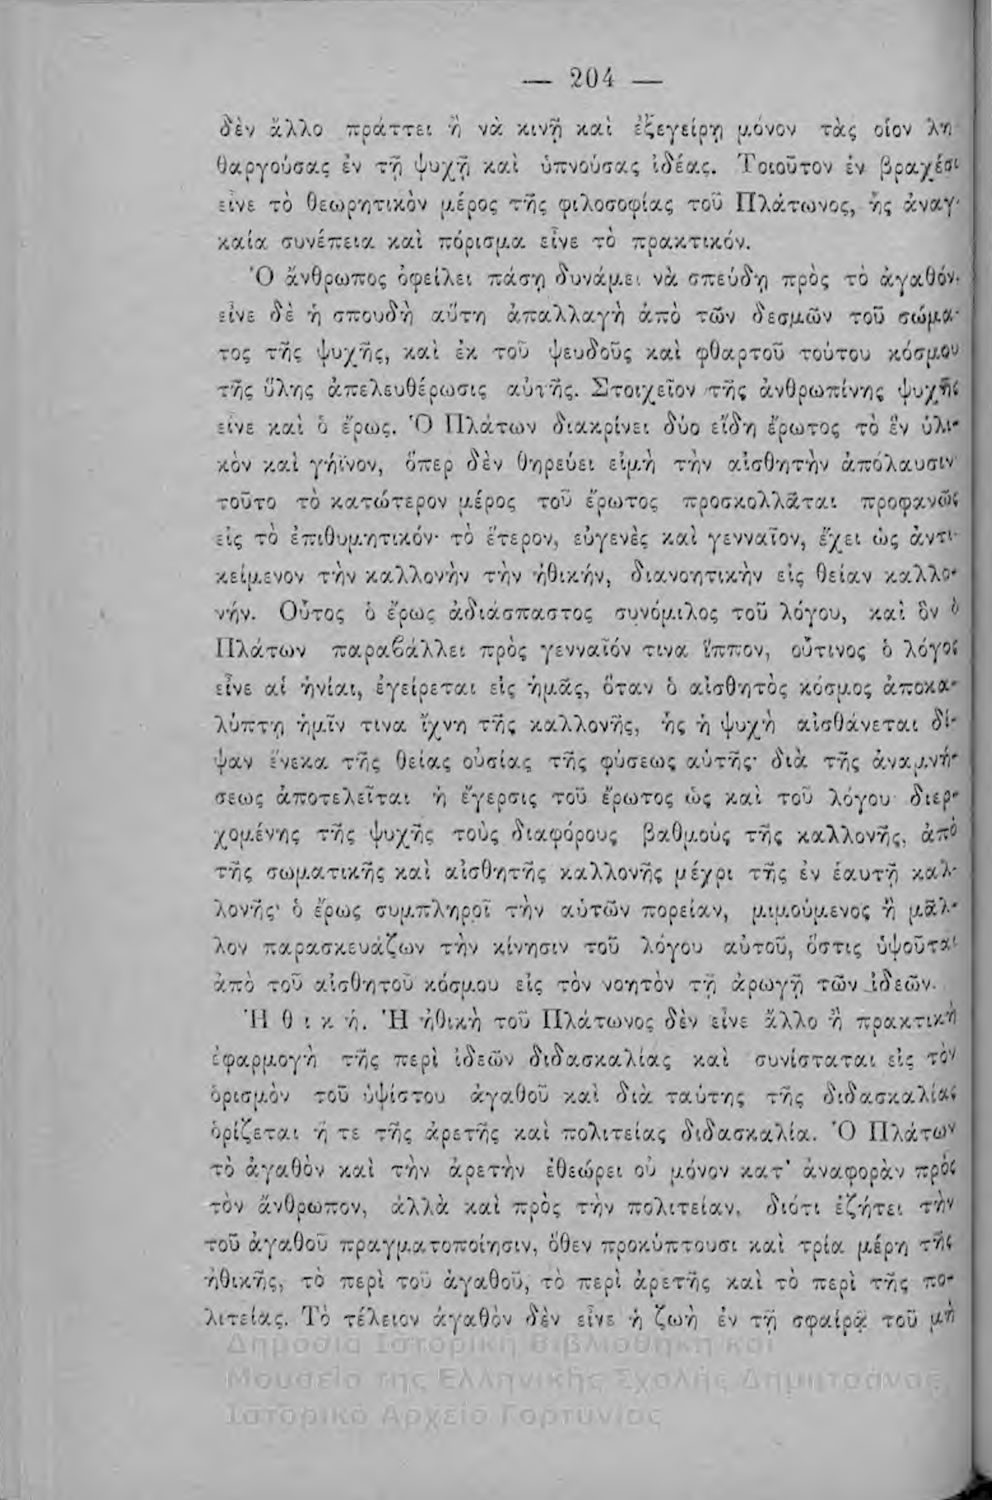 — 204 —
δὲν ἄλλο πράττει ἢ νὰ κινῇ καὶ ἐξεγείρῃ μόνον τὰς οἷον λη-
θαργούσας ἐν τῇ ψυχῇ καὶ ὑπνούσας ἰδέας. Τοιοῦτον ἐν βραχέσι
εἶνε τὸ θεωρητικὸν μέρος τῆς φιλοσοφίας τοῦ Πλάτωνος, ἧς ἀναγ-
καία συνέπεια καὶ πόρισμα εἶνε τὸ πρακτικόν.
Ὁ ἄνθρωπος ὀφείλει πάσῃ δυνάμει νὰ σπεύδῃ πρὸς τὸ ἀγαθόν·
εἶνε δὲ ἡ σπουδὴ αὕτη ἀπαλλαγὴ ἀπὸ τῶν δεσμῶν τοῦ σώμα-
τος τῆς ψυχῆς, καὶ ἐκ τοῦ ψευδοῦς καὶ φθαρτοῦ τούτου κόσμου
τῆς ὕλης ἀπελευθέρωσις αὐτῆς. Στοιχεῖον τῆς ἀνθρωπίνης ψυχῆς
εἶνε καὶ ὁ ἔρως. Ὁ Πλάτων διακρίνει δύο εἴδη ἔρωτος τὸ ἓν ὑλι-
κὸν καὶ γήϊνον, ὅπερ δὲν θηρεύει εἰμὴ τὴν αἰσθητὴν ἀπόλαυσιν
τοῦτο τὸ κατώτερον μέρος τοῦ ἔρωτος προσκολλᾶται προφανῶς
εἰς τὸ ἐπιθυμητικόν· τὸ ἕτερον, εὐγενὲς καὶ γενναῖον, ἔχει ὡς ἀντι-
κείμενον τὴν καλλονὴν τὴν ἠθικήν, διανοητικὴν εἰς θείαν καλλο-
νήν. Οὗτος ὁ ἔρως ἀδιάσπαστος συνόμιλος τοῦ λόγου, καὶ ὃν ὁ
Πλάτων παραβάλλει πρὸς γενναῖόν τινα ἵππον, οὗτινος ὁ λόγος
εἶνε αἱ ἡνίαι, ἐγείρεται εἰς ἡμᾶς, ὅταν ὁ αἰσθητὸς κόσμος ἀποκα-
λύπτῃ ἡμῖν τινα ἴχνη τῆς καλλονῆς, ἧς ἡ ψυχὴ αἰσθάνεται δί-
ψαν ἕνεκα τῆς θείας οὐσίας τῆς φύσεως αὐτῆς· διὰ τῆς ἀναμνή-
σεως ἀποτελεῖται ἡ ἔγερσις τοῦ ἔρωτος ὡς καὶ τοῦ λόγου· διερ-
χομένης τῆς ψυχῆς τοὺς διαφόρους βαθμοὺς τῆς καλλονῆς, ἀπὸ
τῆς σωματικῆς καὶ αἰσθητῆς καλλονῆς μέχρι τῆς ἐν ἑαυτῇ καλ-
λονῆς· ὁ ἔρως συμπληροῖ τὴν αὐτῶν πορείαν, μιμούμενος ἢ μᾶλ-
λον παρασκευάζων τὴν κίνησιν τοῦ λόγου αὐτοῦ, ὅστις ὑψοῦται
ἀπὸ τοῦ αἰσθητοῦ κόσμου εἰς τὸν νοητὸν τῇ ἀρωγῇ τῶν ἰδεῶν.
Ἠθική. Ἡ ἠθικὴ τοῦ Πλάτωνος δὲν εἶνε ἄλλο ἢ πρακτικὴ
ἐφαρμογὴ τῆς περὶ ἰδεῶν διδασκαλίας καὶ συνίσταται εἰς τὸν
ὁρισμὸν τοῦ ὑψίστου ἀγαθοῦ καὶ διὰ ταύτης τῆς διδασκαλίας
ὁρίζεται ἥ τε τῆς ἀρετῆς καὶ πολιτείας διδασκαλία. Ὁ Πλάτων
τὸ ἀγαθὸν καὶ τὴν ἀρετὴν ἐθεώρει οὐ μόνον κατ᾽ ἀναφορὰν πρὸς
τὸν ἄνθρωπον, ἀλλὰ καὶ πρὸς τὴν πολιτείαν, διότι ἐζήτει τὴν
τοῦ ἀγαθοῦ πραγματοποίησιν, ὅθεν προκύπτουσι καὶ τρία μέρη τῆς
ἠθικῆς, τὸ περὶ τοῦ ἀγαθοῦ, τὸ περὶ ἀρετῆς καὶ τὸ περὶ τῆς πο-
λιτείας. Τὸ τέλειον ἀγαθὸν δὲν εἶνε ἡ ζωὴ ἐν τῇ σφαίρᾳ τοῦ μὴ
Δημόσια Ιστορική Βιβλιοθήκη και
Μουσείο της Ελληνικής Σχολής Δημητσάνας
Ιστορικό Αρχείο Γορτυνίας